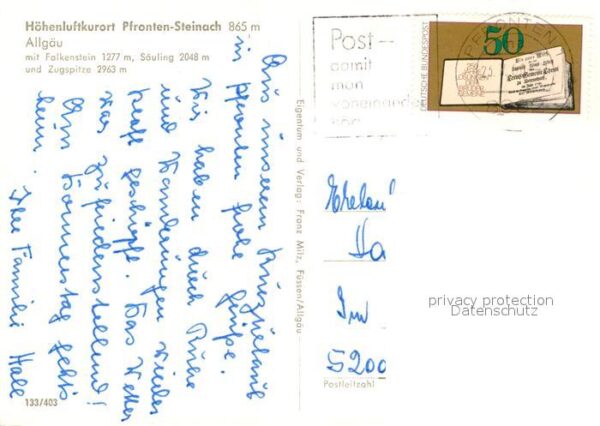 Höhenluftkurort Pfronten-Steinach 865 m
Allgäu
mit Falkenstein 1277 m, Säuling 2048 m
und Zugspitze 2963 m
Aus unserem Kurzurlaub
in Pfronten frohe
Grüße.
Wir haben durch Ruhe
und Wanderungen wieder
Kraft geschöpft. Das Wetter
war zufriedenstellend!
Am Donnerstag geht's
heim. Ihre Familie
133/403
Eigentum und Verlag: Franz Milz, Füssen/Allgäu
Post-
damit
man
voneinander
hört
PFRONTEN
50
DEUTSCHE BUNDESPOST
Ehelau
Ha
Im
5200
Postleitzahl
privacy protection
Datenschutz